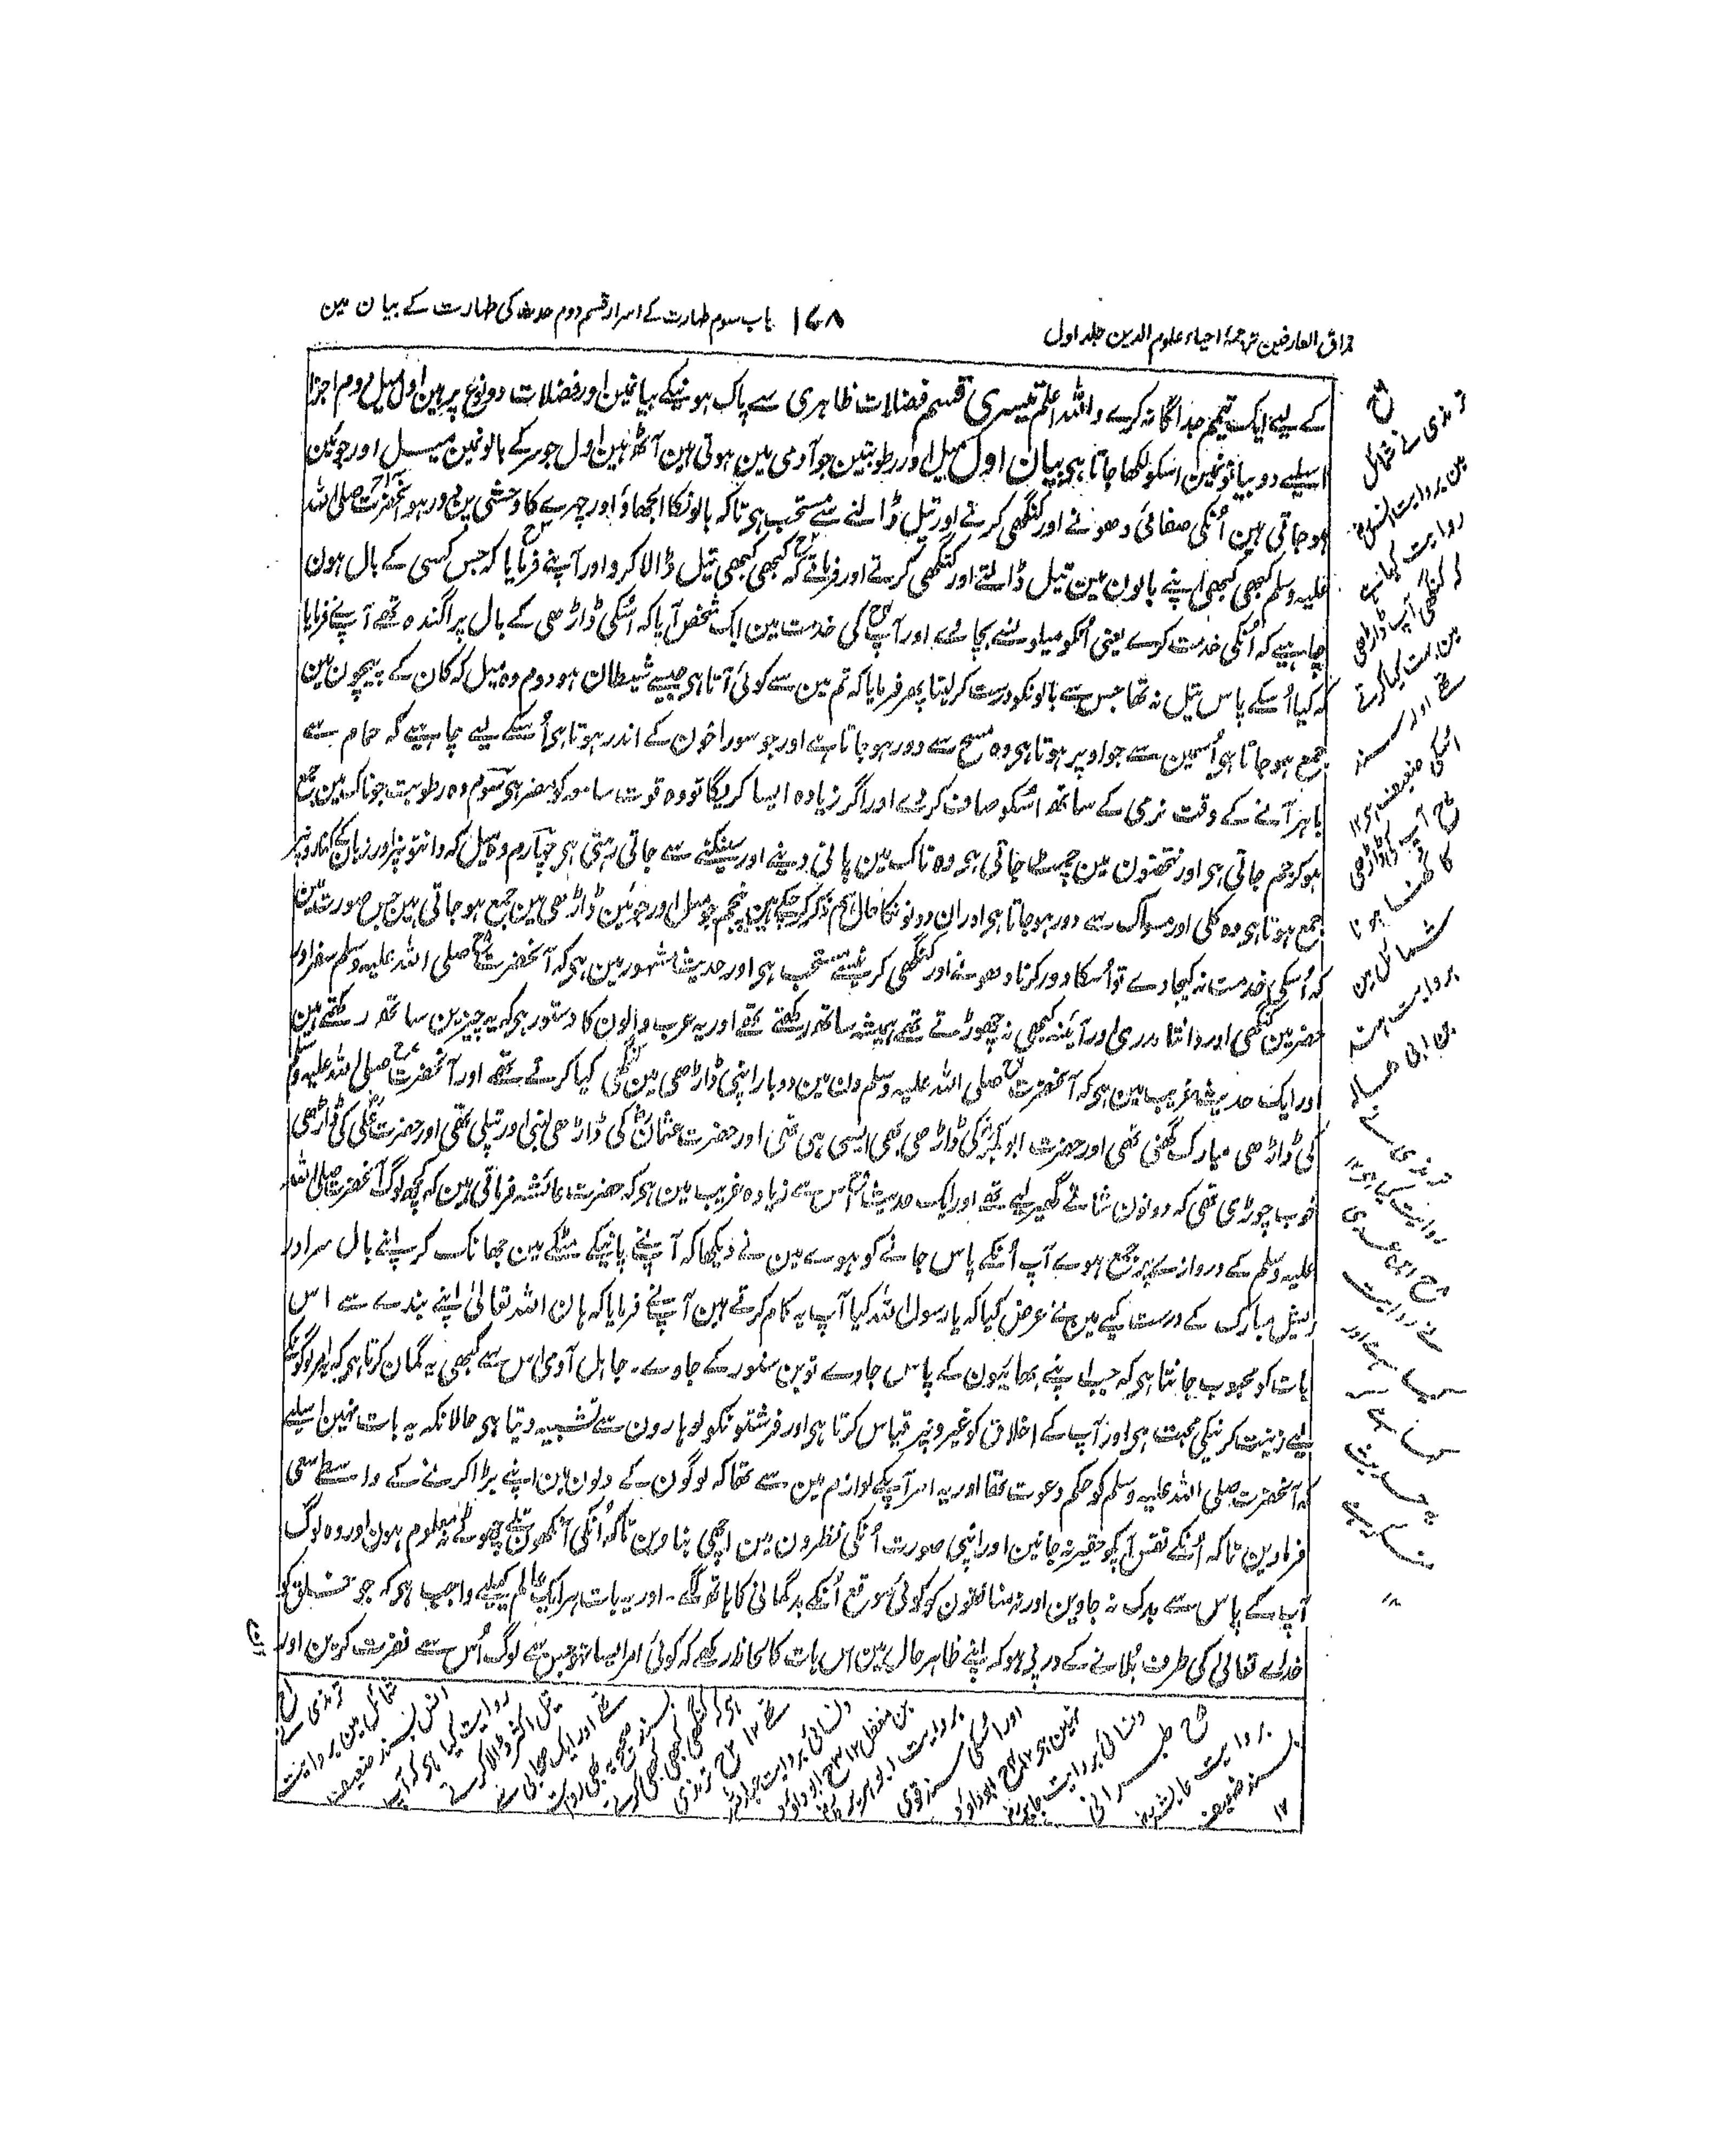 مذاق العارفین ترجمۂ احیاء علوم الدین جلد اول
۱۶۸
باب سوم طہارت کے اسرار قسم دوم حدث کی طہارت کے بیان مین
کے لیے ایک تیمم جداگانہ کرے واللہ اعلم تیسری قسم فضلات ظاہری سے پاک ہونیکے بیانمین اور فضلات دو نوع پر ہین اول میل دوم اجزا
اسلیے دو بیانونمین اسکو لکھا جاتا ہی بیان اول میل اور رطوبتین جو آدمی مین ہوتی ہین آٹھ ہین اول جو سر کے بالونمین میل اور جوئین
ہو جاتی ہین اُنکی صفائی دھونے اور کنگھی کرنے اور تیل ڈالنے سے مستحب ہی تاکہ بالونکا الجھاؤ اور چہرے کا وحشی پن دور ہو آنحضرت صلی اللہ
علیہ وسلم کبھی کبھی اپنے بالون مین تیل ڈالتے اور کنگھی کرتے اور فرماتے کہ کبھی کبھی تیل ڈالا کرو اور آپنے فرمایا کہ جس کسی کے بال ہون
چاہیے کہ اُنکی خدمت کرے یعنی اُنکو میلو نسے بچائے اور آپ کی خدمت مین ایک شخص آیا کہ اُسکی ڈاڑھی کے بال پراگندہ تھے آپنے فرمایا
کہ کیا اُسکے پاس تیل نہ تھا جس سے بالونکو درست کر لیتا پھر فرمایا کہ تم مین سے کوئی آتا ہی جیسے شیطان ہو دوم وہ میل کہ کان کے پیچون مین
جمع ہو جاتا ہی اُسمین سے جو اوپر ہوتا ہی وہ مسح سے دور ہو جاتا ہے اور جو سوراخون کے اندر ہوتا ہی اُسکے لیے چاہیے کہ حمام سے
باہر آنے کے وقت نرمی کے ساتھ اُسکو صاف کرلے اور اگر زیادہ ایسا کریگا تو وہ قوت سامعہ کو مضر ہی سوم وہ رطوبت جو ناک مین جمع
ہو کر جم جاتی ہی اور نتھنون مین چمٹ جاتی ہی وہ ناک مین پانی دینے اور سینکنے سے جاتی رہتی ہی چہارم وہ میل کہ دانتونپر اور زبان کے کنارونپر
جمع ہوتا ہی وہ کلی اور مسواک سے دور ہو جاتا ہی اور ان دونونکا حال ہم ذکر کر چکے ہین پنجم جو میل اور جوئین ڈاڑھی مین جمع ہو جاتی ہین جس صورت مین
کہ اُسکی خدمت نہ کیجاوے تو اُسکا دور کرنا دھونے اور کنگھی کرنیسے مستحب ہی اور حدیث مشہور مین ہی کہ آنحضرت صلی اللہ علیہ وسلم سفر اور
حضر مین کنگھی اور دانتا مدری اور آئینہ کبھی نہ چھوڑتے تھے ہمیشہ ساتھ رکھتے تھے اور یہ عرب والون کا دستور ہی کہ یہ چیزین ساتھ رکھتے ہین
اور ایک حدیث غریب مین ہی کہ آنحضرت صلی اللہ علیہ وسلم دن مین دو بار اپنی ڈاڑھی مین کنگھی کیا کرتے تھے اور آنحضرت صلی اللہ علیہ وسلم
کی ڈاڑھی مبارک گھنی تھی اور حضرت ابو بکرؓ کی ڈاڑھی بھی ایسی ہی تھی اور حضرت عثمانؓ کی ڈاڑھی لنبی اور پتلی تھی اور حضرت علیؓ کی ڈاڑھی
خوب چوڑی تھی کہ دونون شانے گھیر لیے تھے اور ایک حدیث مین اس سے زیادہ غریب مین ہی کہ حضرت عائشہ فرماتی ہین کہ کچھ لوگ آنحضرت صلی اللہ
علیہ وسلم کے دروازے پر جمع ہوے آپ اُنکے پاس جانے کو ہوے مین نے دیکھا کہ آپنے پانیکے مٹکے مین جھانک کر اپنے بال سر اور
ریش مبارک کے درست کیے مین نے عرض کیا کہ یا رسول اللہ کیا آپ یہ کام کرتے ہین آپنے فرمایا کہ ہان اللہ تعالیٰ اپنے بندے سے اس
بات کو محبوب جانتا ہی کہ جب اپنے بھائیون کے پاس جاوے تو بن سنور کے جاوے۔ جاہل آدمی اس سے کبھی یہ گمان کرتا ہی کہ یہ امر لوگونکے
لیے زینت کرنیکی محبت ہی اور آپ کے اخلاق کو غیرونپر قیاس کرتا ہی اور فرشتونکو لوہارون سے تشبیہ دیتا ہی حالانکہ یہ بات نہین اسلیے
کہ آنحضرت صلی اللہ علیہ وسلم کو حکم دعوت تھا اور یہ امر آپکے لوازم مین سے تھا کہ لوگون کے دلون مین اپنے بڑا کرنے کے واسطے سعی
فرماوین تاکہ اُنکے نفس آپکو حقیر نہ جانین اور اپنی صورت اُنکی نظرون مین اچھی بناوین تاکہ اُنکی آنکھون تلے چھوٹے نہ معلوم ہون اور وہ لوگ
آپ کے پاس سے بدک نہ جاوین اور نہ منافقون کو کوئی موقع اُنکے بدگمانی کا ہاتھ لگے۔ اور یہ بات ہر ایک عالم کیلیے واجب ہی کہ جو خلق کو
خداے تعالیٰ کی طرف بلانے کے درپی ہو کہ اپنے ظاہر حال مین اس بات کا لحاظ رکھے کہ کوئی امر ایسا نہو جس سے لوگ اُس سے نفرت کرین اور
ترمذی نے شمائل
مین بروایت انسؓ
روایت کیا ہے
کہ کنگھی آپ ڈاڑھی
مین بہت کیا کرتے
تھے اور سند
اسکی ضعیف ہی ۱۲
آپ کی ڈاڑھی
کا گھنا ہونا
شمائل مین
بروایت ہند
بن ابی ہالہ
ترمذی نے
روایت کیا ہی ۱۲
ابن عدی
نے روایت
کیا ہے اور
کہا ہے کہ
یہ حدیث
منکر ہے
۱۲
ترمذی نے
شمائل مین بروایت
انس بسند ضعیف
روایت کیا ہی کہ آپ
تیل اکثر ڈالا کرتے
تھے اور ایک صحابی سے
بسند صحیح یہ بھی روایت
ہی کہ کنگھی کبھی کبھی کرتے
تھے ۱۲ ترمذی
ونسائی بروایت عبداللہ
بن مغفل ۱۲ ابو داؤد
بروایت ابو ہریرہؓ
اور اسکی سند قوی
نہین ہی ۱۲ ابو داؤد
ونسائی بروایت جابرؓ
طبرانی
بروایت عائشہؓ
بسند ضعیف
۱۲